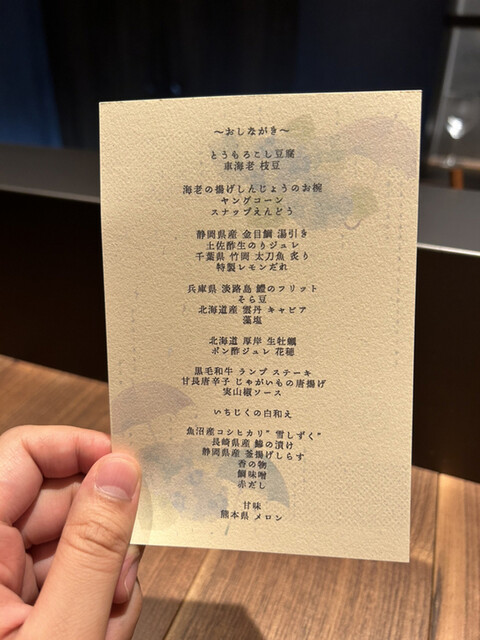 ～おしながき～
とうもろこし豆腐
車海老 枝豆
海老の揚げしんじょうのお椀
ヤングコーン
スナップえんどう
静岡県産 金目鯛 湯引き
土佐酢生のりジュレ
千葉県 竹岡 太刀魚 炙り
特製レモンだれ
兵庫県 淡路島 鱧のフリット
そら豆
北海道産 雲丹 キャビア
藻塩
北海道 厚岸 生牡蠣
ポン酢ジュレ 花穂
黒毛和牛 ランプ ステーキ
甘長唐辛子 じゃがいもの唐揚げ
実山椒ソース
いちじくの白和え
魚沼産コシヒカリ”雪しずく”
長崎県産 鯵の漬け
静岡県産 釜揚げしらす
香の物
鯛味噌
赤だし
甘味
熊本県 メロン